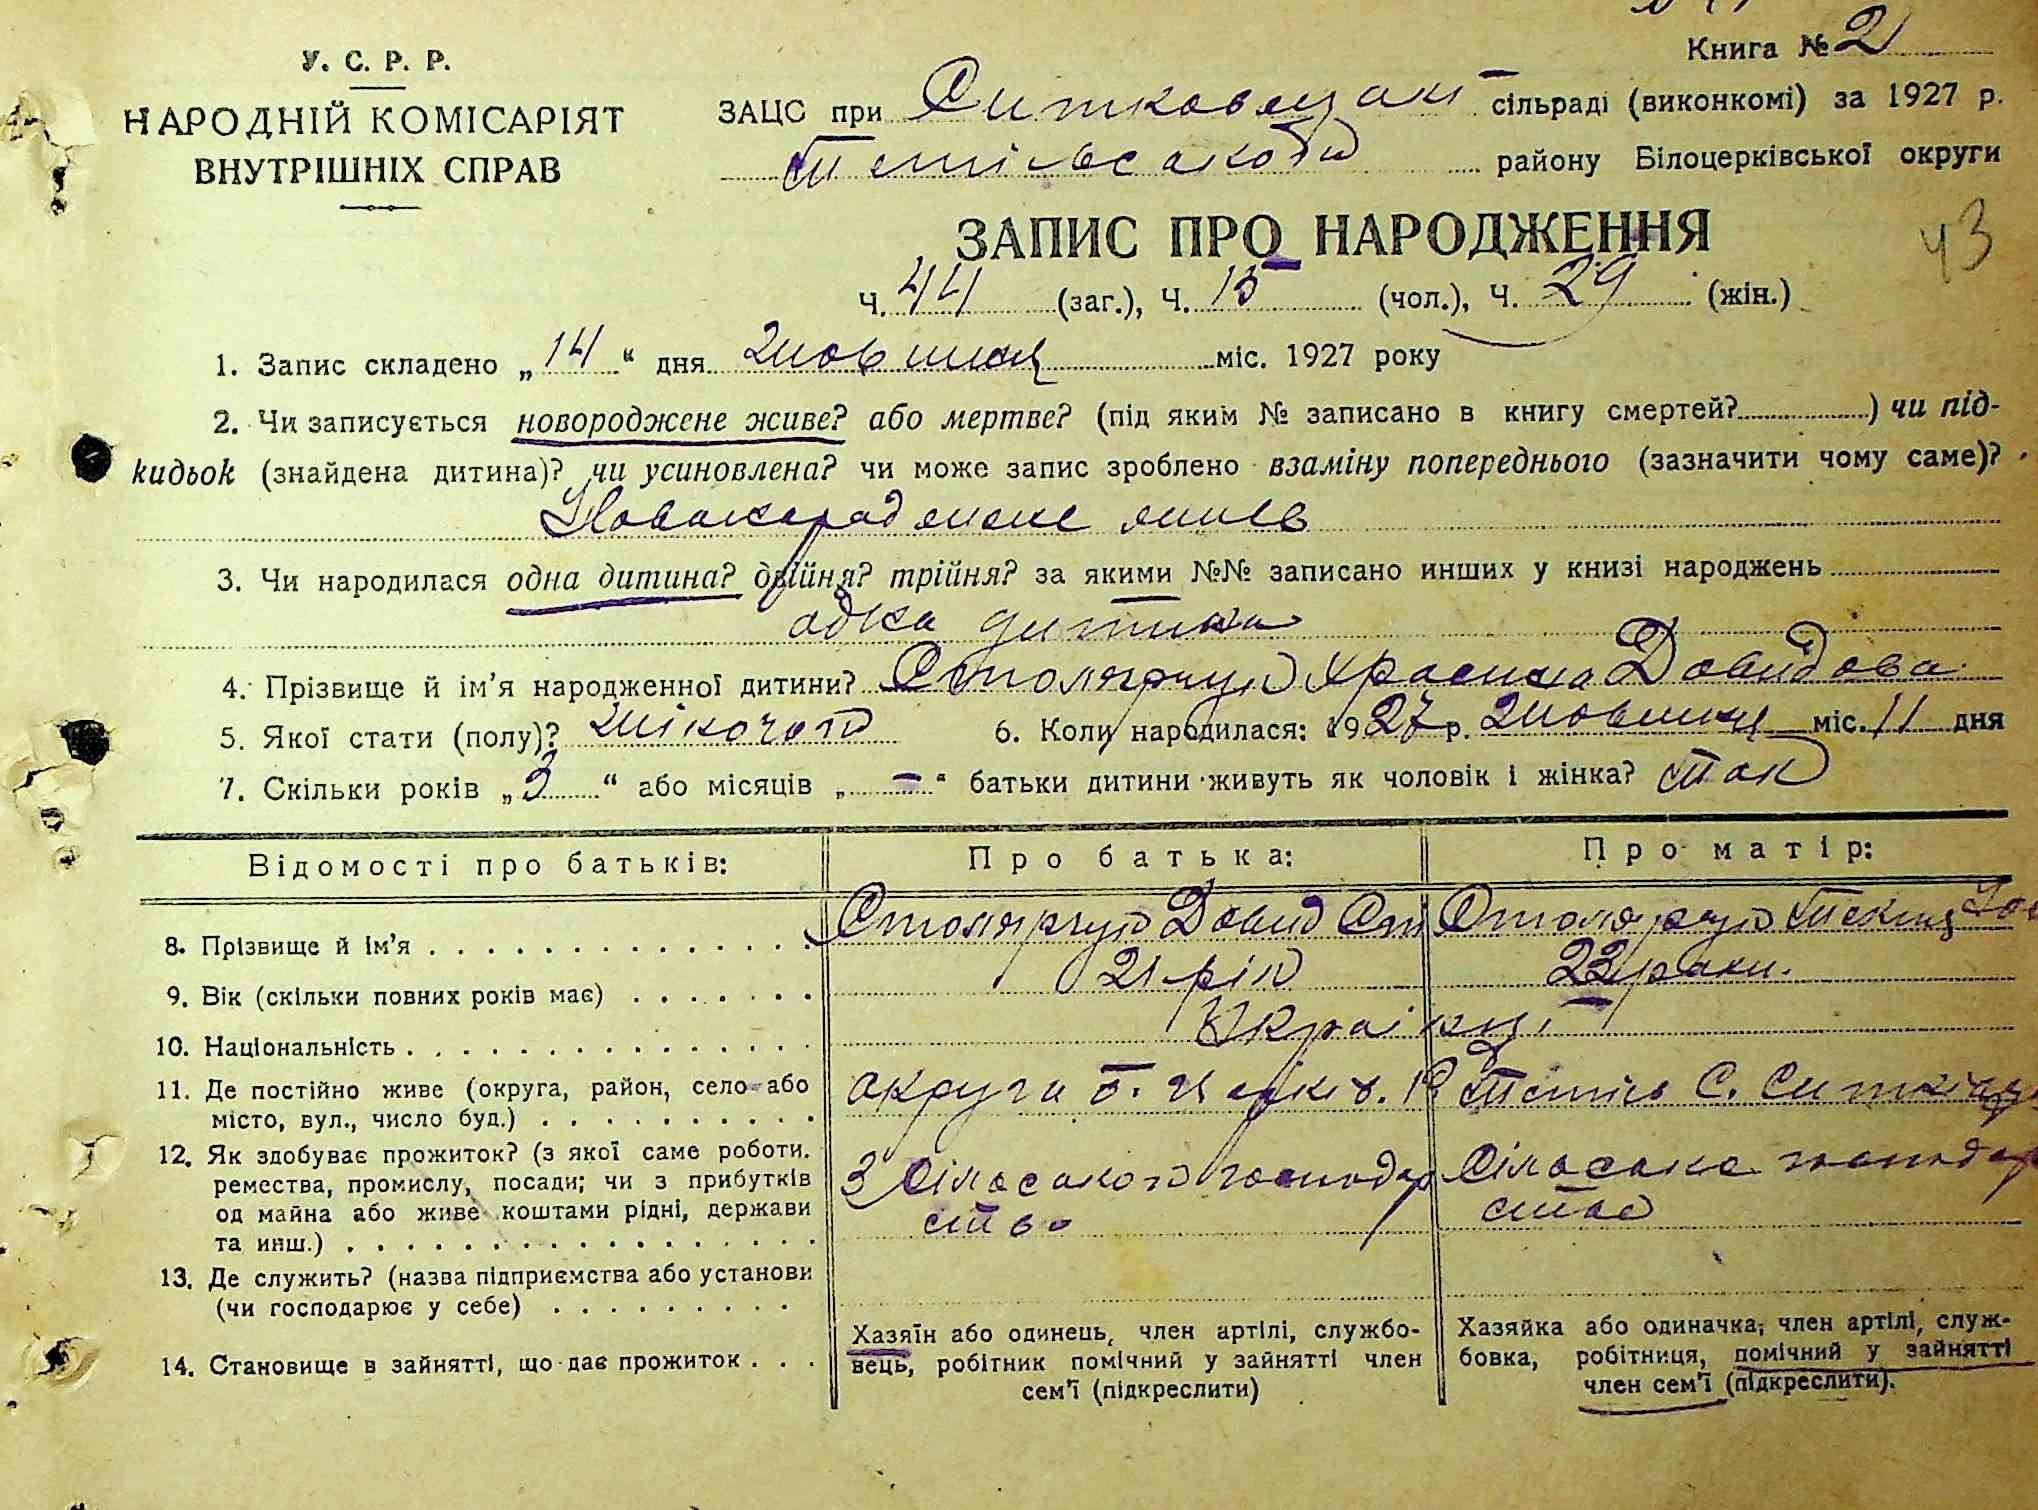 У. С. Р. Р.
НАРОДНІЙ КОМІСАРІЯТ
ВНУТРІШНІХ СПРАВ
Книга № 2
ЗАЦС при сільраді (виконкомі) за 1927 р.
району Білоцерківської округи
ЗАПИС ПРО НАРОДЖЕННЯ
43
Ч. 44 (заг.), Ч. 15 (чол.), Ч. 29 (жін.)
1. Запис складено „14“ дня жовтня міс. 1927 року
2. Чи записується новороджене живе? або мертве? (під яким № записано в книгу смертей?) чи під-
кидьок (знайдена дитина)? чи усиновлена? чи може запис зроблено взаміну попереднього (зазначити чому саме)?
3. Чи народилася одна дитина? двійня? трійня? за якими №№ записано инших у книзі народжень
одна дитина
4. Прізвище й ім'я народженної дитини? Столярчук Давидова
5. Якої стати (полу)? жіночого 6. Коли народилася: 1927 р. жовтня міс. 11 дня
7. Скільки років „3“ або місяців „–“ батьки дитини живуть як чоловік і жінка? Так
Відомості про батьків: Про батька: Про матір:
8. Прізвище й ім'я Столярчук Давид Ст Столярчук
9. Вік (скільки повних років має) 21 рік 22 роки.
10. Національність Українці
11. Де постійно живе (округа, район, село або
місто, вул., число буд.) округи Б. Церків. Р. Тетіїв С.
12. Як здобуває прожиток? (з якої саме роботи.
ремества, промислу, посади; чи з прибутків
од майна або живе коштами рідні, держави
та инш.) З сільського господар
ство
сільське господар
ство
13. Де служить? (назва підприємства або установи
(чи господарює у себе)
14. Становище в зайнятті, що дає прожиток
Хазяїн або одинець, член артілі, службо-
вець, робітник помічний у зайнятті член
сем'ї (підкреслити)
Хазяйка або одиначка, член артілі, служ-
бовка, робітниця, помічний у зайнятті
член сем'ї (підкреслити).